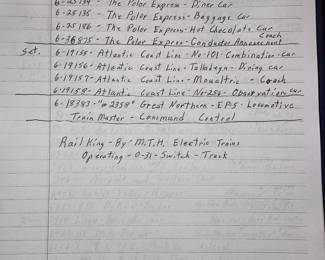 6-25134 - The Polar Express - Diner Car
6-25135 - The Polar Express - Baggage Car
6-25186 - The Polar Express - Hot Chocolate Car
6-36875 - The Polar Express - Conductor Announcement Coach
Set. 6-19155 - Atlantic Coast Line - No-101 - Combination - Car
6-19156 - Atlantic Coast Line - Talladega - Dining car
6-19157 - Atlantic Coast Line - Moultrie - Coach
6-19158 - Atlantic Coast Line - No-256 - Observation car
6-18383 - "#2358" Great Northern - EP-5 - Locomotive
Train Master - Command Control
Rail King - By - M.T.H. Electric Trains
Operating - 0-31 - Switch - Track